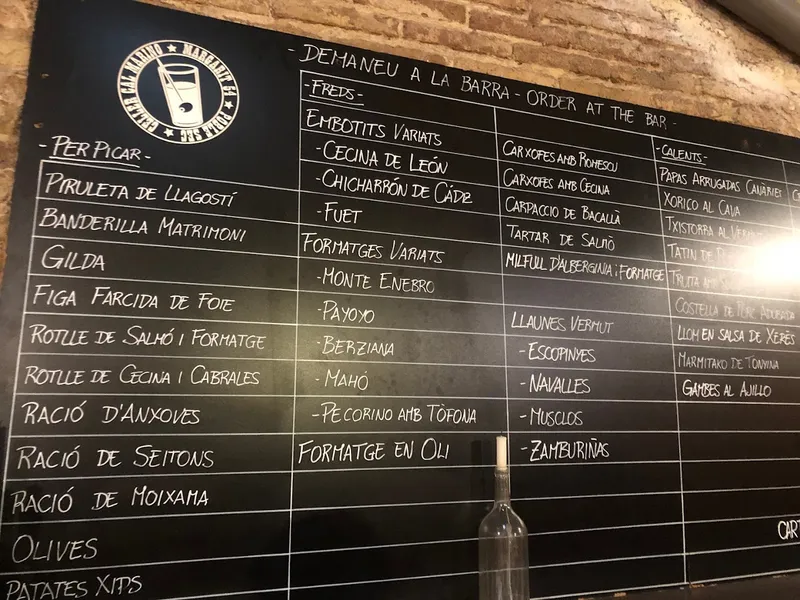 CELLER CAL MARINO ★ MARGARIT 54 ★ POBLE SEC ★
- DEMANEU A LA BARRA - ORDER AT THE BAR -
- PER PICAR -
PIRULETA DE LLAGOSTÍ
BANDERILLA MATRIMONI
GILDA
FIGA FARCIDA DE FOIE
ROTLLE DE SALMÓ I FORMATGE
ROTLLE DE CECINA I CABRALES
RACIÓ D'ANXOVES
RACIÓ DE SEITONS
RACIÓ DE MOIXAMA
OLIVES
PATATES XIPS
- FREDS -
EMBOTITS VARIATS
- CECINA DE LEÓN
- CHICHARRÓN DE CÁDIZ
- FUET
FORMATGES VARIATS
- MONTE ENEBRO
- PAYOYO
- BERZIANA
- MAHÓ
- PECORINO AMB TÒFONA
FORMATGE EN OLI
CARXOFES AMB ROMESCU
CARXOFES AMB CECINA
CARPACCIO DE BACALLÀ
TARTAR DE SALMÓ
MILFULL D'ALBERGINIA i FORMATGE
LLAUNES VERMUT
- ESCOPINYES
- NAVALLES
- MUSCLOS
- ZAMBURIÑAS
- CALENTS -
PAPAS ARRUGADAS CANÀRIES
XORIÇO AL CAVA
TXISTORRA AL
TATIN DE
TRUITA AMB
COSTELLA DE PORC ADOBADA
LLOM EN SALSA DE XERÈS
MARMITAKO DE TONYINA
GAMBES AL AJILLO
CART